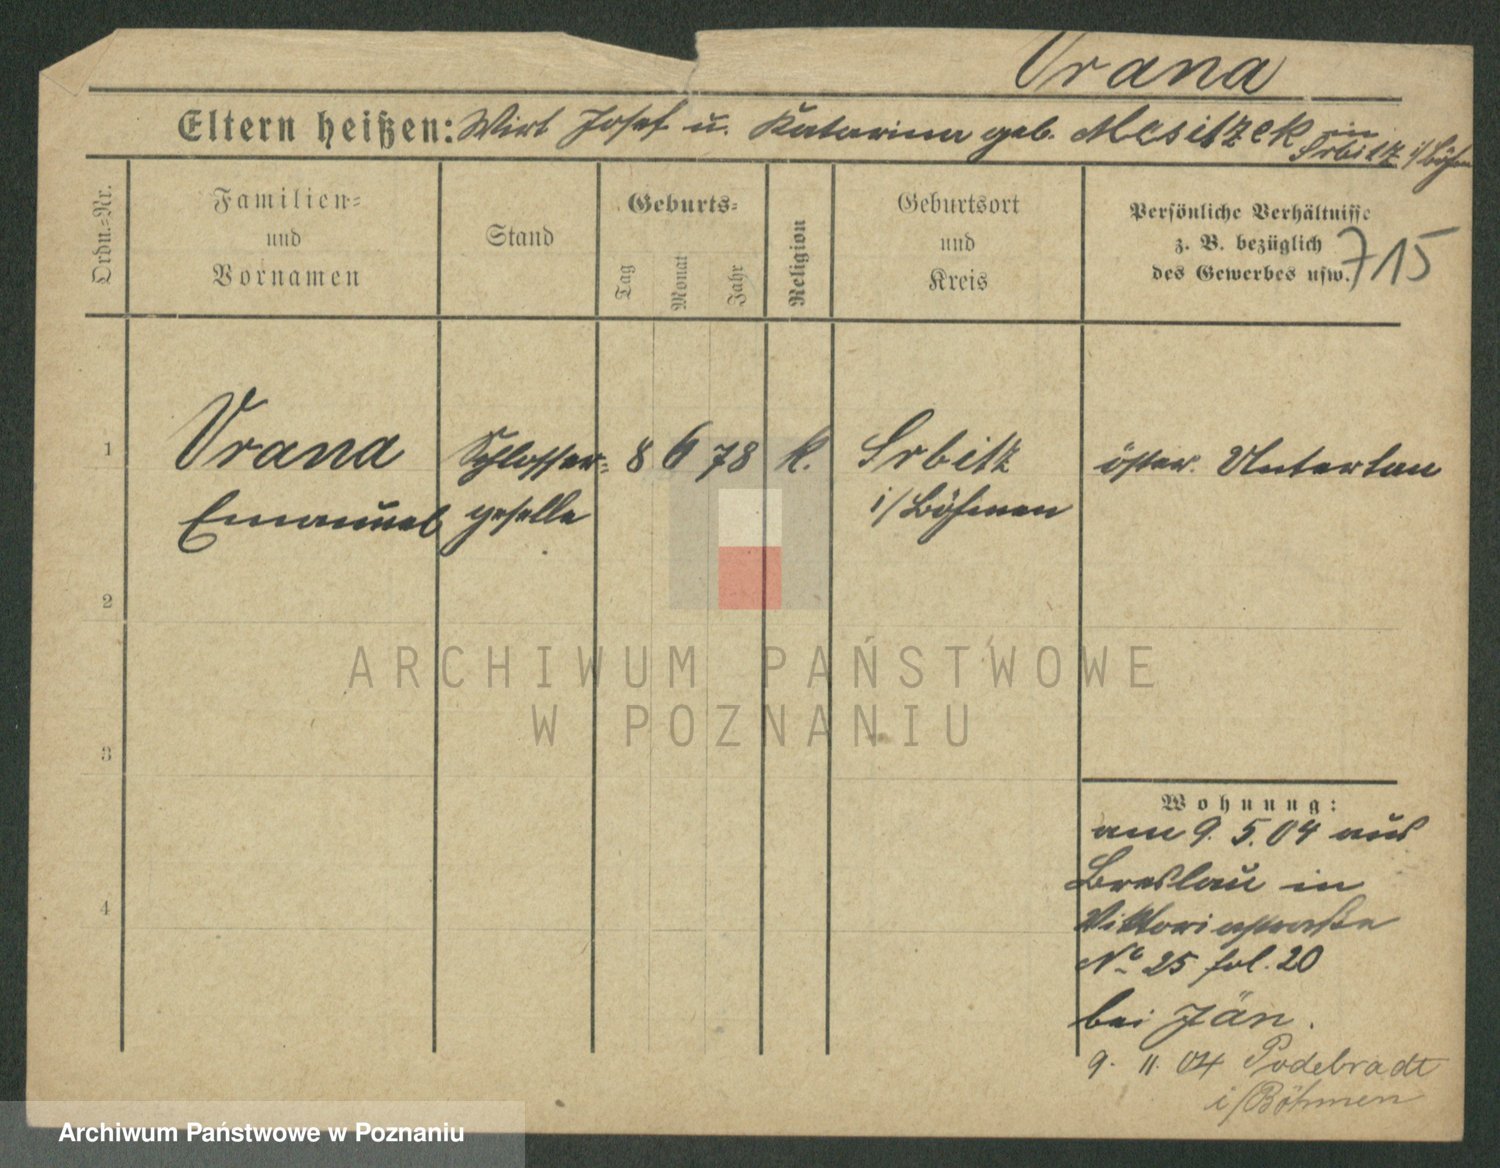 Vrana
Eltern heißen: Wirt Josef u. Katarina geb. Mesitzek in
Srbitz i/Böhm
Ordn.-Nr.
Familien-
und
Vornamen
Stand
Geburts-
Tag
Monat
Jahr
Religion
Geburtsort
und
Kreis
Persönliche Verhältnisse
z. B. bezüglich
des Gewerbes usw.
715
1
Vrana Schlosser- 8 6 78 k. Srbitz öster. Untertan
Emanuel geselle i/Böhmen
2
ARCHIWUM PAŃSTWOWE
W POZNANIU
3
Wohnung:
am 9. 5. 04 aus
Breslau in
4
Viktoriastraße
No 25 fol. 20
bei Jän.
9. 11. 04 Podebradt
i/Böhmen
Archiwum Państwowe w Poznaniu